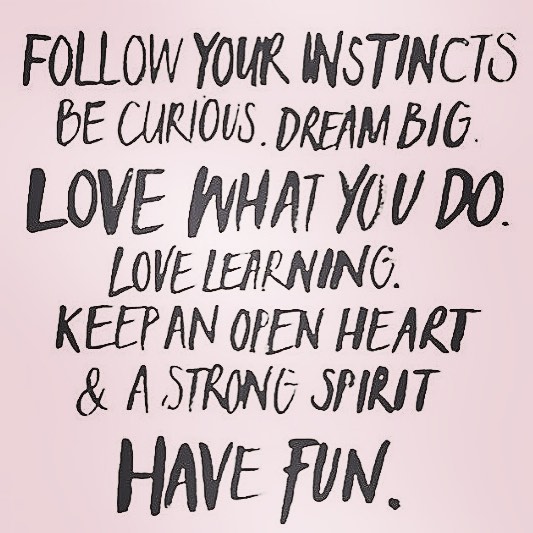 FOLLOW YOUR INSTINCTS
BE CURIOUS. DREAM BIG.
LOVE WHAT YOU DO.
LOVE LEARNING.
KEEP AN OPEN HEART
& A STRONG SPIRIT
HAVE FUN.